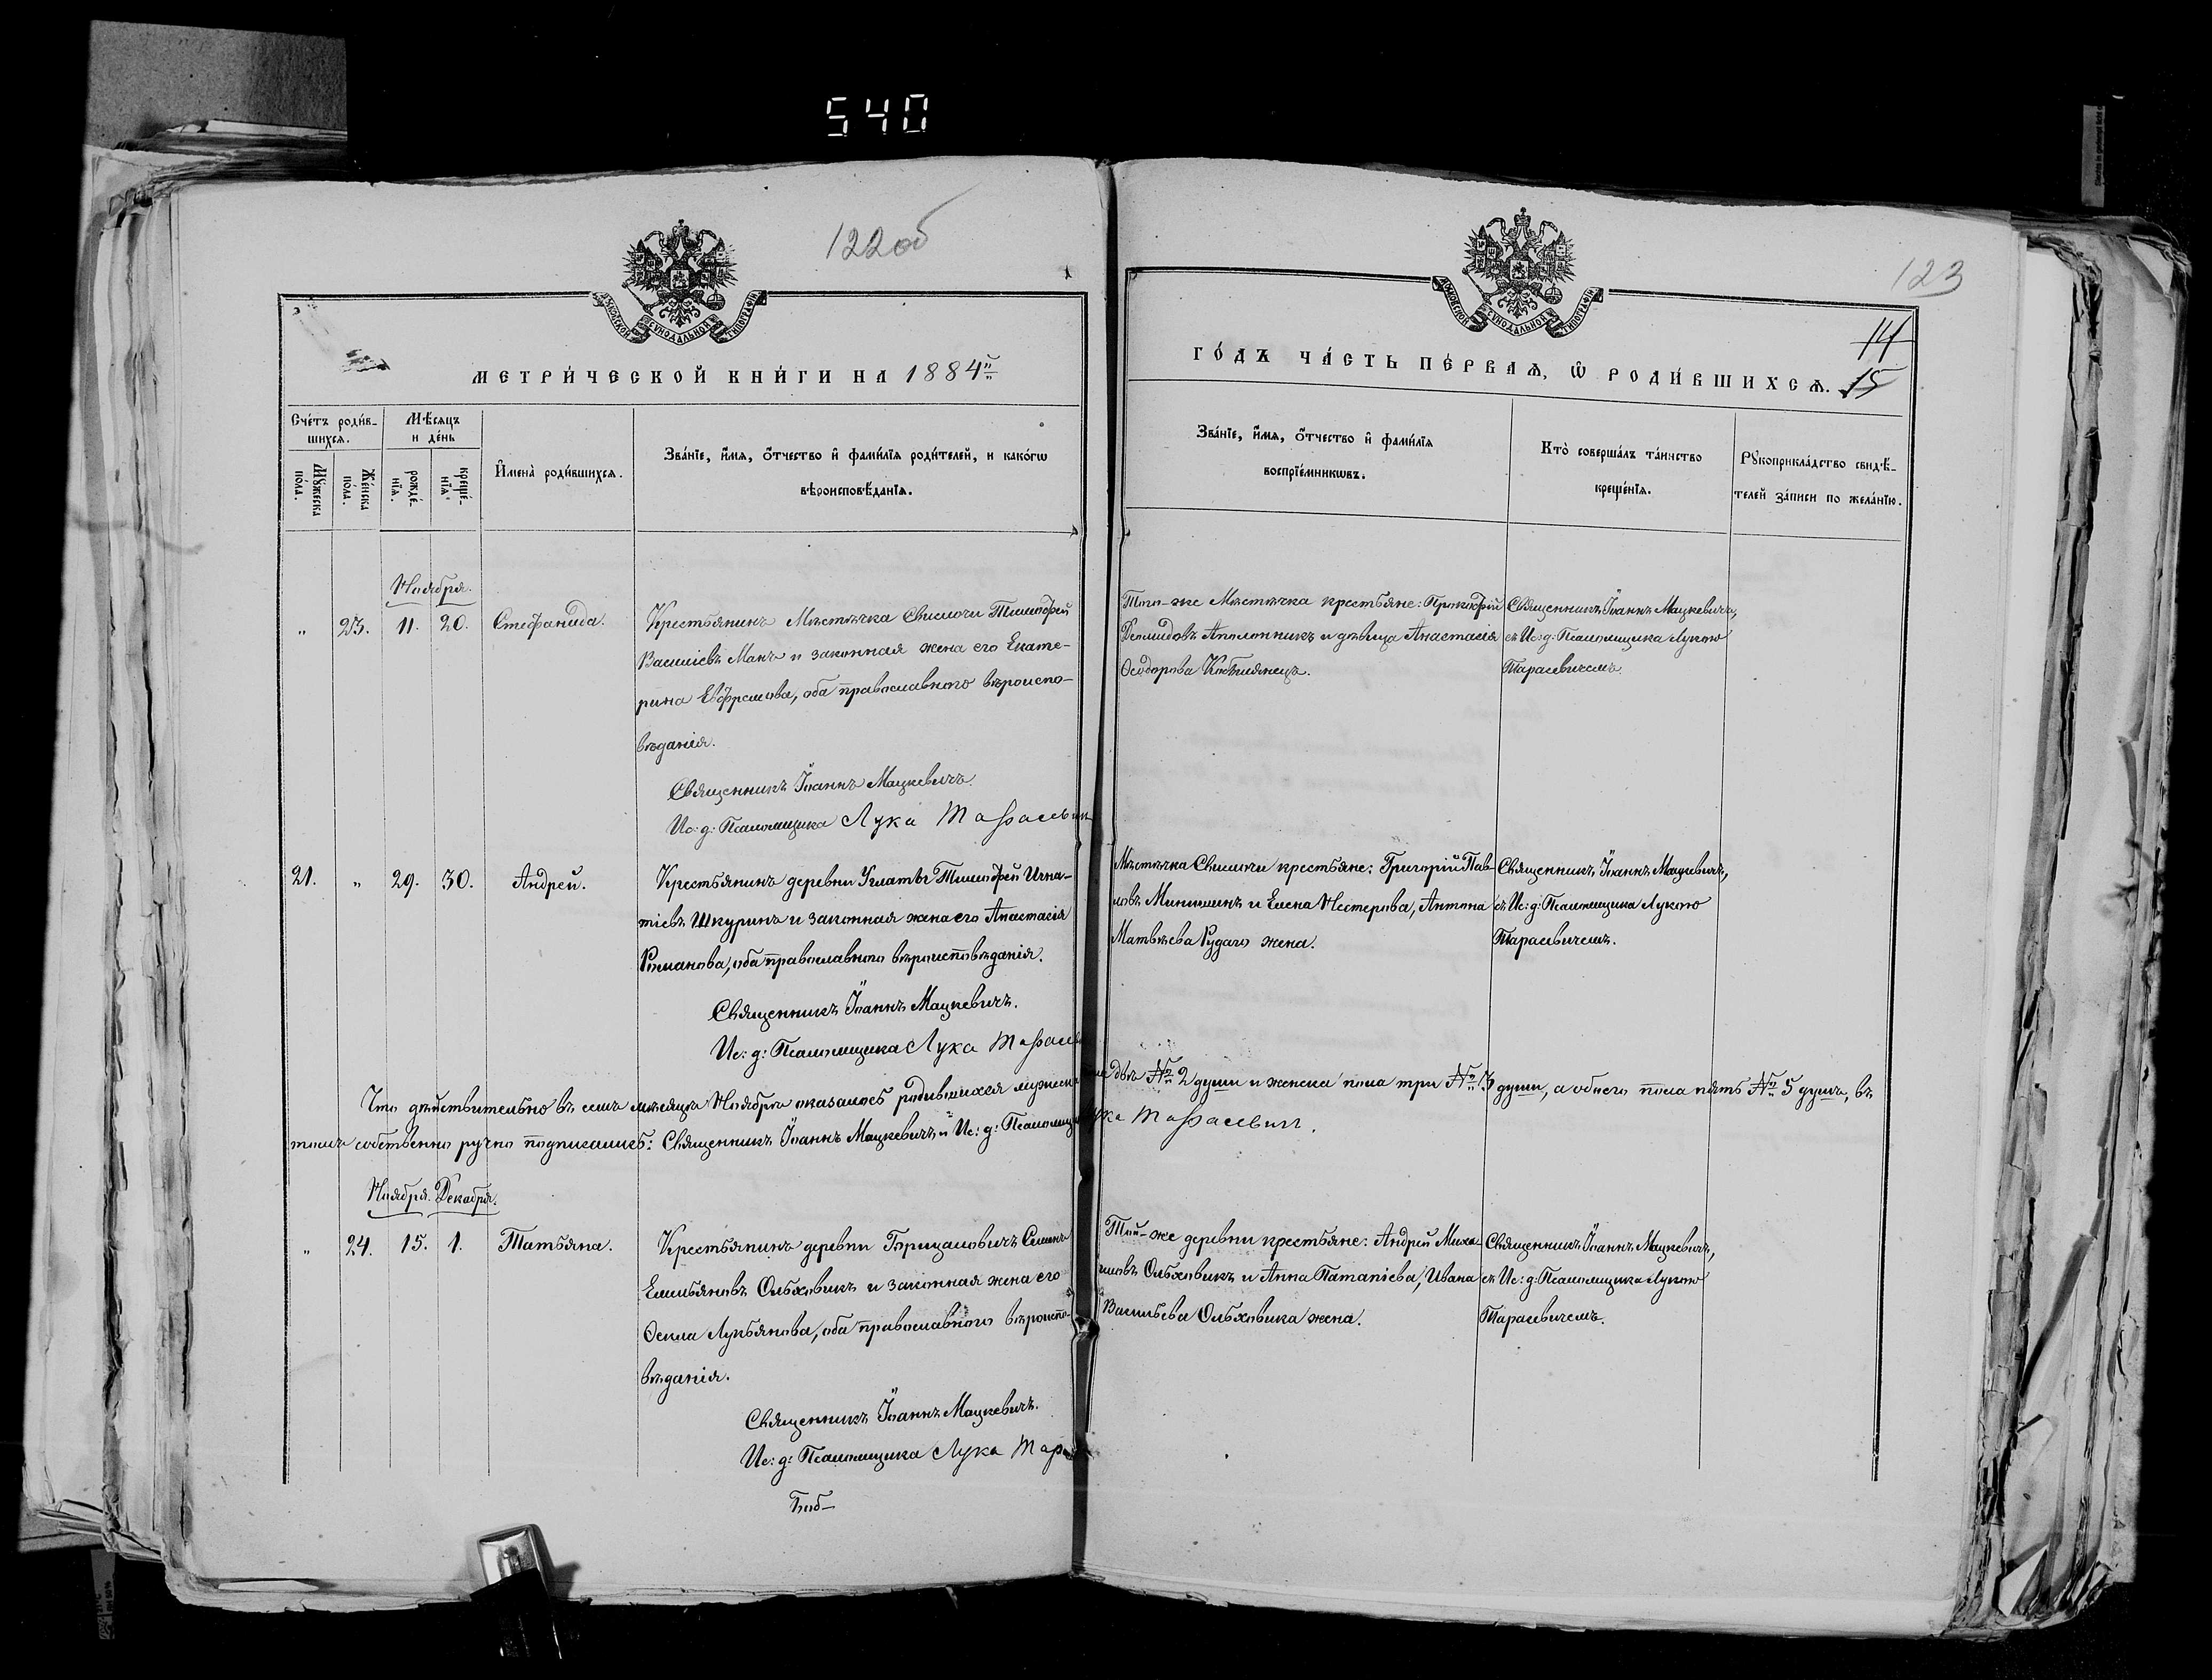 540
122об
123
14
15
МЕТРИ́ЧЕСКОЙ КНИ́ГИ НА 1884й
ГО́ДЪ ЧА́СТЬ ПЕ́РВАѦ, Ѡ РОДИ́ВШИХСѦ.
Сче́тъ роди́в-
шихсѧ.
Мѣ́сѧцъ
и де́нь
Мꙋ́жеска по́ла.
Же́нска по́ла.
рожде́-
нїѧ.
креще́-
нїѧ.
И҆мена̀ роди́вшихсѧ.
Зва́нїе, и҆́мѧ, ѻ҆́тчество и҆ фами́лїѧ роди́телей, и како́гѡ
вѣроисповѣ́данїѧ.
Зва́нїе, и҆́мѧ, ѻ҆́тчество и҆ фами́лїѧ
воспрїе́мникѡвъ.
Кто̀ соверша́лъ та́инство
креще́нїѧ.
Рꙋкоприкла́дство свидѣ́-
телей за́писи по жела́нїю.
Ноября.
" 23. 11. 20. Стефанида.
Крестьянинъ Мѣстечка Свислочи Тимофей
Василіевъ Манъ и законная жена его Екате-
рина Евфремова, оба православного вѣроиспо-
вѣданія.
Священникъ Іоаннъ Мацкевичъ.
Ис: д: Псаломщика Лука Тарасевич
Того-же Мѣстечка крестьяне: Прокофій
Демидовъ Аполонникъ и дѣвица Анастасія
Ѳеодорова
Священникъ Іоаннъ Мацкевичъ,
съ Ис: д: Псаломщика Лукою
Тарасевичемъ.
21. " 29. 30. Андрей.
Крестьянинъ деревни Углатъ Тимофей Игна-
тіевъ Шкуринъ и законная жена его Анастасія
Романова, оба православного вѣроисповѣданія.
Священникъ Іоаннъ Мацкевичъ.
Ис: д: Псаломщика Лука Тарасев
Мѣстечка Свислочи крестьяне: Григорій Пав-
ловъ и Елена Нестерова, Антона
Матвѣева Рудаго жена.
Священникъ Іоаннъ Мацкевичъ,
съ Ис: д: Псаломщика Лукою
Тарасевичемъ.
Что дѣйствительно въ семъ мѣсяцѣ Ноябрѣ оказалось родившихся мужеска пола два № 2 души и женска пола три № 3 души, а обоего пола пять № 5 душъ, въ
томъ собственно ручно подписались: Священникъ Іоаннъ Мацкевичъ и Ис: д: Псаломщика Лука Тарасевич.
Ноября. Декабря.
" 24. 15. 1. Татьяна.
Крестьянинъ деревни Горицаловичъ Семенъ
Емельяновъ Ольховикъ и законная жена его
Ѳекла Лукьянова, оба православного вѣроиспо-
вѣданія.
Священникъ Іоаннъ Мацкевичъ.
Ис: д: Псаломщика Лука Тарас
Той-же деревни крестьяне: Андрей Миха-
иловъ Ольховикъ и Анна Патапіева, Ивана
Васильева Ольховика жена.
Священникъ Іоаннъ Мацкевичъ,
съ Ис: д: Псаломщика Лукою
Тарасевичемъ.